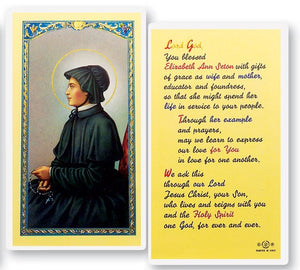 Lord God,
You blessed
Elizabeth Ann Seton with gifts
of grace as wife and mother,
educator and foundress,
so that she might spend her
life in service to your people.
Through her example
and prayers,
may we learn to express
our love for You
in love for one another.
We ask this
through our Lord
Jesus Christ, your Son,
who lives and reigns with you
and the Holy Spirit
one God, for ever and ever.